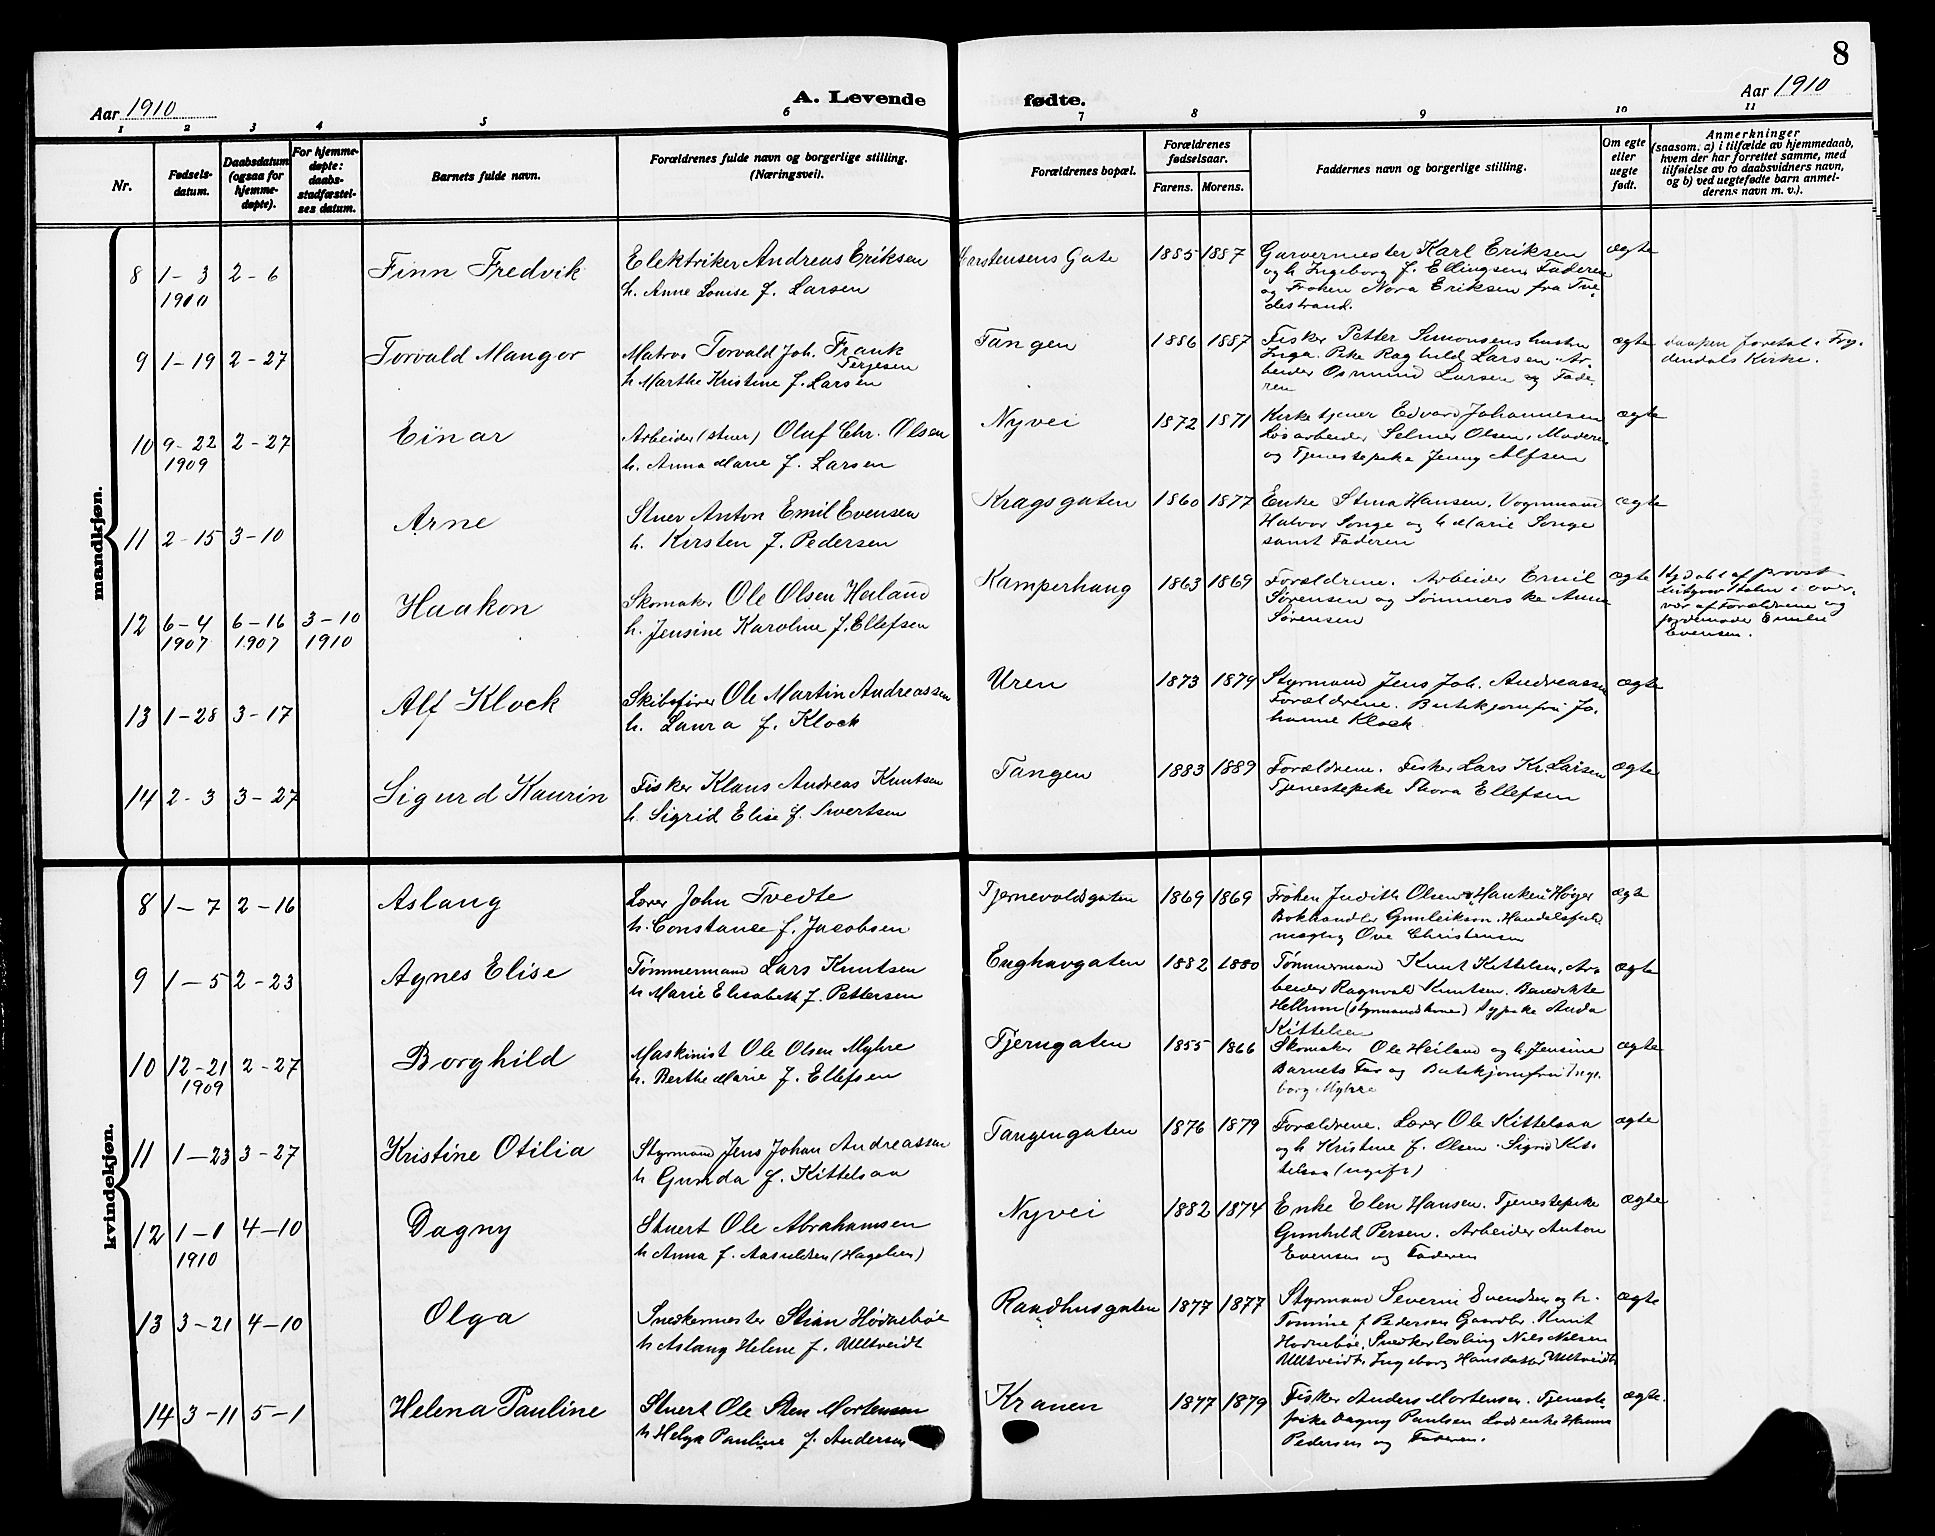 8
Aar 1910
A. Levende fødte.
Aar 1910
1 2 3 4 5 6 7 8 9 10 11
Nr.
Fødsels-
datum.
Daabsdatum
(ogsaa for
hjemme-
døpte).
For hjemme-
døpte:
daabs-
stadfæstel-
ses datum.
Barnets fulde navn.
Forældrenes fulde navn og borgerlige stilling.
(Næringsvei).
Forældrenes bopæl.
Forældrenes
fødselsaar.
Farens. Morens.
Faddernes navn og borgerlige stilling.
Om egte
eller
uegte
født.
Anmerkninger
(saasom. a) i tilfælde av hjemmedaab,
hvem der har forrettet samme, med
tilføielse av to daabsvidners navn,
og b) ved uegtefødte barn anmel-
derens navn m. v.).
mandkjøn.
8 1-3 1910 2-6 Finn Fredvik
Elektriker Andreas Eriksen
h. Anne Louise f. Larsen
Carstensens Gate 1885 1887
Garvermester Karl Eriksen
og h. Ingeborg f. Ellingsen, Faderen
og Frøken Nora Eriksen fra Tve-
destrand.
ægte
9 1-19 2-27 Torvald Manger
Matros Torvald Joh. Frank
Terjesen
h. Marthe Kristine f. Larsen
Tangen 1886 1887
Fisker Petter Simonsens hustru
Inga. Pike Raghild Larsen. Ar-
beider Osmund Larsen og Fade-
ren
ægte
daapen foretat i Fry-
dendals Kirke.
10 9-22 1909 2-27 Einar
Arbeider (stuer) Oluf Chr. Olsen
h. Anna Marie f. Larsen
Nyvei 1872 1871
Kirketjener Edvard Johannesen
Løsarbeider Selmer Olsen, Moderen
og Tjenestepike Jenny Alfsen
ægte
11 2-15 3-10 Arne
Stuer Anton Emil Evensen
h. Kirsten f. Pedersen
Kragsgaten 1860 1877
Enke Stina Hansen. Vognmand
Halvor Songe og h. Marie Songe
samt Faderen
ægte
12 6-4 1907 6-16 1907 3-10 1910 Haakon
Skomaker Ole Olsen Heiland
h. Jensine Karoline f. Ellefsen
Kamperhaug 1863 1869
Forældrene. Arbeider Emil
Sørensen og Sømmerske Anna
Sørensen
ægte
Hjdøbt af provst
i over-
vær af Forældrene og
jordemoder Emilie
Evensen.
13 1-28 3-17 Alf Klock
Skibsfører Ole Martin Andreassen
h. Laura f. Klock
Uren 1873 1879
Styrmand Jens Joh. Andreassen
Forældrene. Butikjomfru Jo-
hanne Klock
ægte
14 2-3 3-27 Sigurd Kaurin
Fisker Klaus Andreas Knutsen
h. Sigrid Elise f. Sivertsen
Tangen 1883 1889
Forældrene. Fisker Lars Kr. Larsen
Tjenestepike Thora Ellefsen
ægte
kvindekjøn.
8 1-7 2-16 Aslaug
Lærer John Tvedte
h. Constance f. Jacobsen
Tjernevoldsgaten 1869 1869
Frøken Judith Olsen & Hanken Høyer
Bokhandler Gunleiksen. Handelsfuld-
mægtig Ove Christensen
ægte
9 1-5 2-23 Agnes Elise
Tømmermand Lars Knutsen
h. Marie Elisabeth f. Pettersen
Enghavgaten 1882 1880
Tømmermand Knut Kittelsen, Ar-
beider Ragnvald Knutsen. Benedikte
Hellum (styrmandskone) sypike Anda
Kittelsen
ægte
10 12-21 1909 2-27 Borghild
Maskinist Ole Olsen Myhre
h. Berthe Marie f. Ellefsen
Tjerngaten 1855 1866
Skomaker Ole Heiland og h. Jensine
Barnets Far og Butikjomfru Inge-
borg Myhre
ægte
11 1-23 3-27 Kristine Otilia
Styrmand Jens Johan Andreassen
h. Gunda f. Kittelsaa
Tangengaten 1876 1879
Forældrene. Lærer Ole Kittelsaa
og h Kristine f. Olsen. Sigrid Kit-
telsaa (ugift)
ægte
12 1-1 1910 4-10 Dagny
Stuert Ole Abrahamsen
h Anna f. Aasuldsen (Hagelien)
Nyvei 1882 1874
Enke Elen Hansen. Tjenestepike
Gunhild Persen. Arbeider Anton
Evensen og Faderen
ægte
13 3-21 4-10 Olga
Snedkermester Stian Hødnebøe
h Aslaug Helene f. Ulltveidt
Raadhusgaten 1877 1877
Styrmand Severin Svendsen og h.
Tomine f Pedersen Gaardbr. Knut
Hødnebøe, Snedkerlærling Nils Nilsen
Ulltveidt, Ingeborg Hansdatter Ulltveidt
ægte
14 3-11 5-1 Helena Pauline
Stuert Ole Sten Mortensen
h Helga Pauline f. Andersen
Kranen 1877 1879
Fisker Anders Mortensen. Tjeneste-
pike Dagny Paulsen Lodsenke Hanna
Pedersen og Faderen.
ægte.